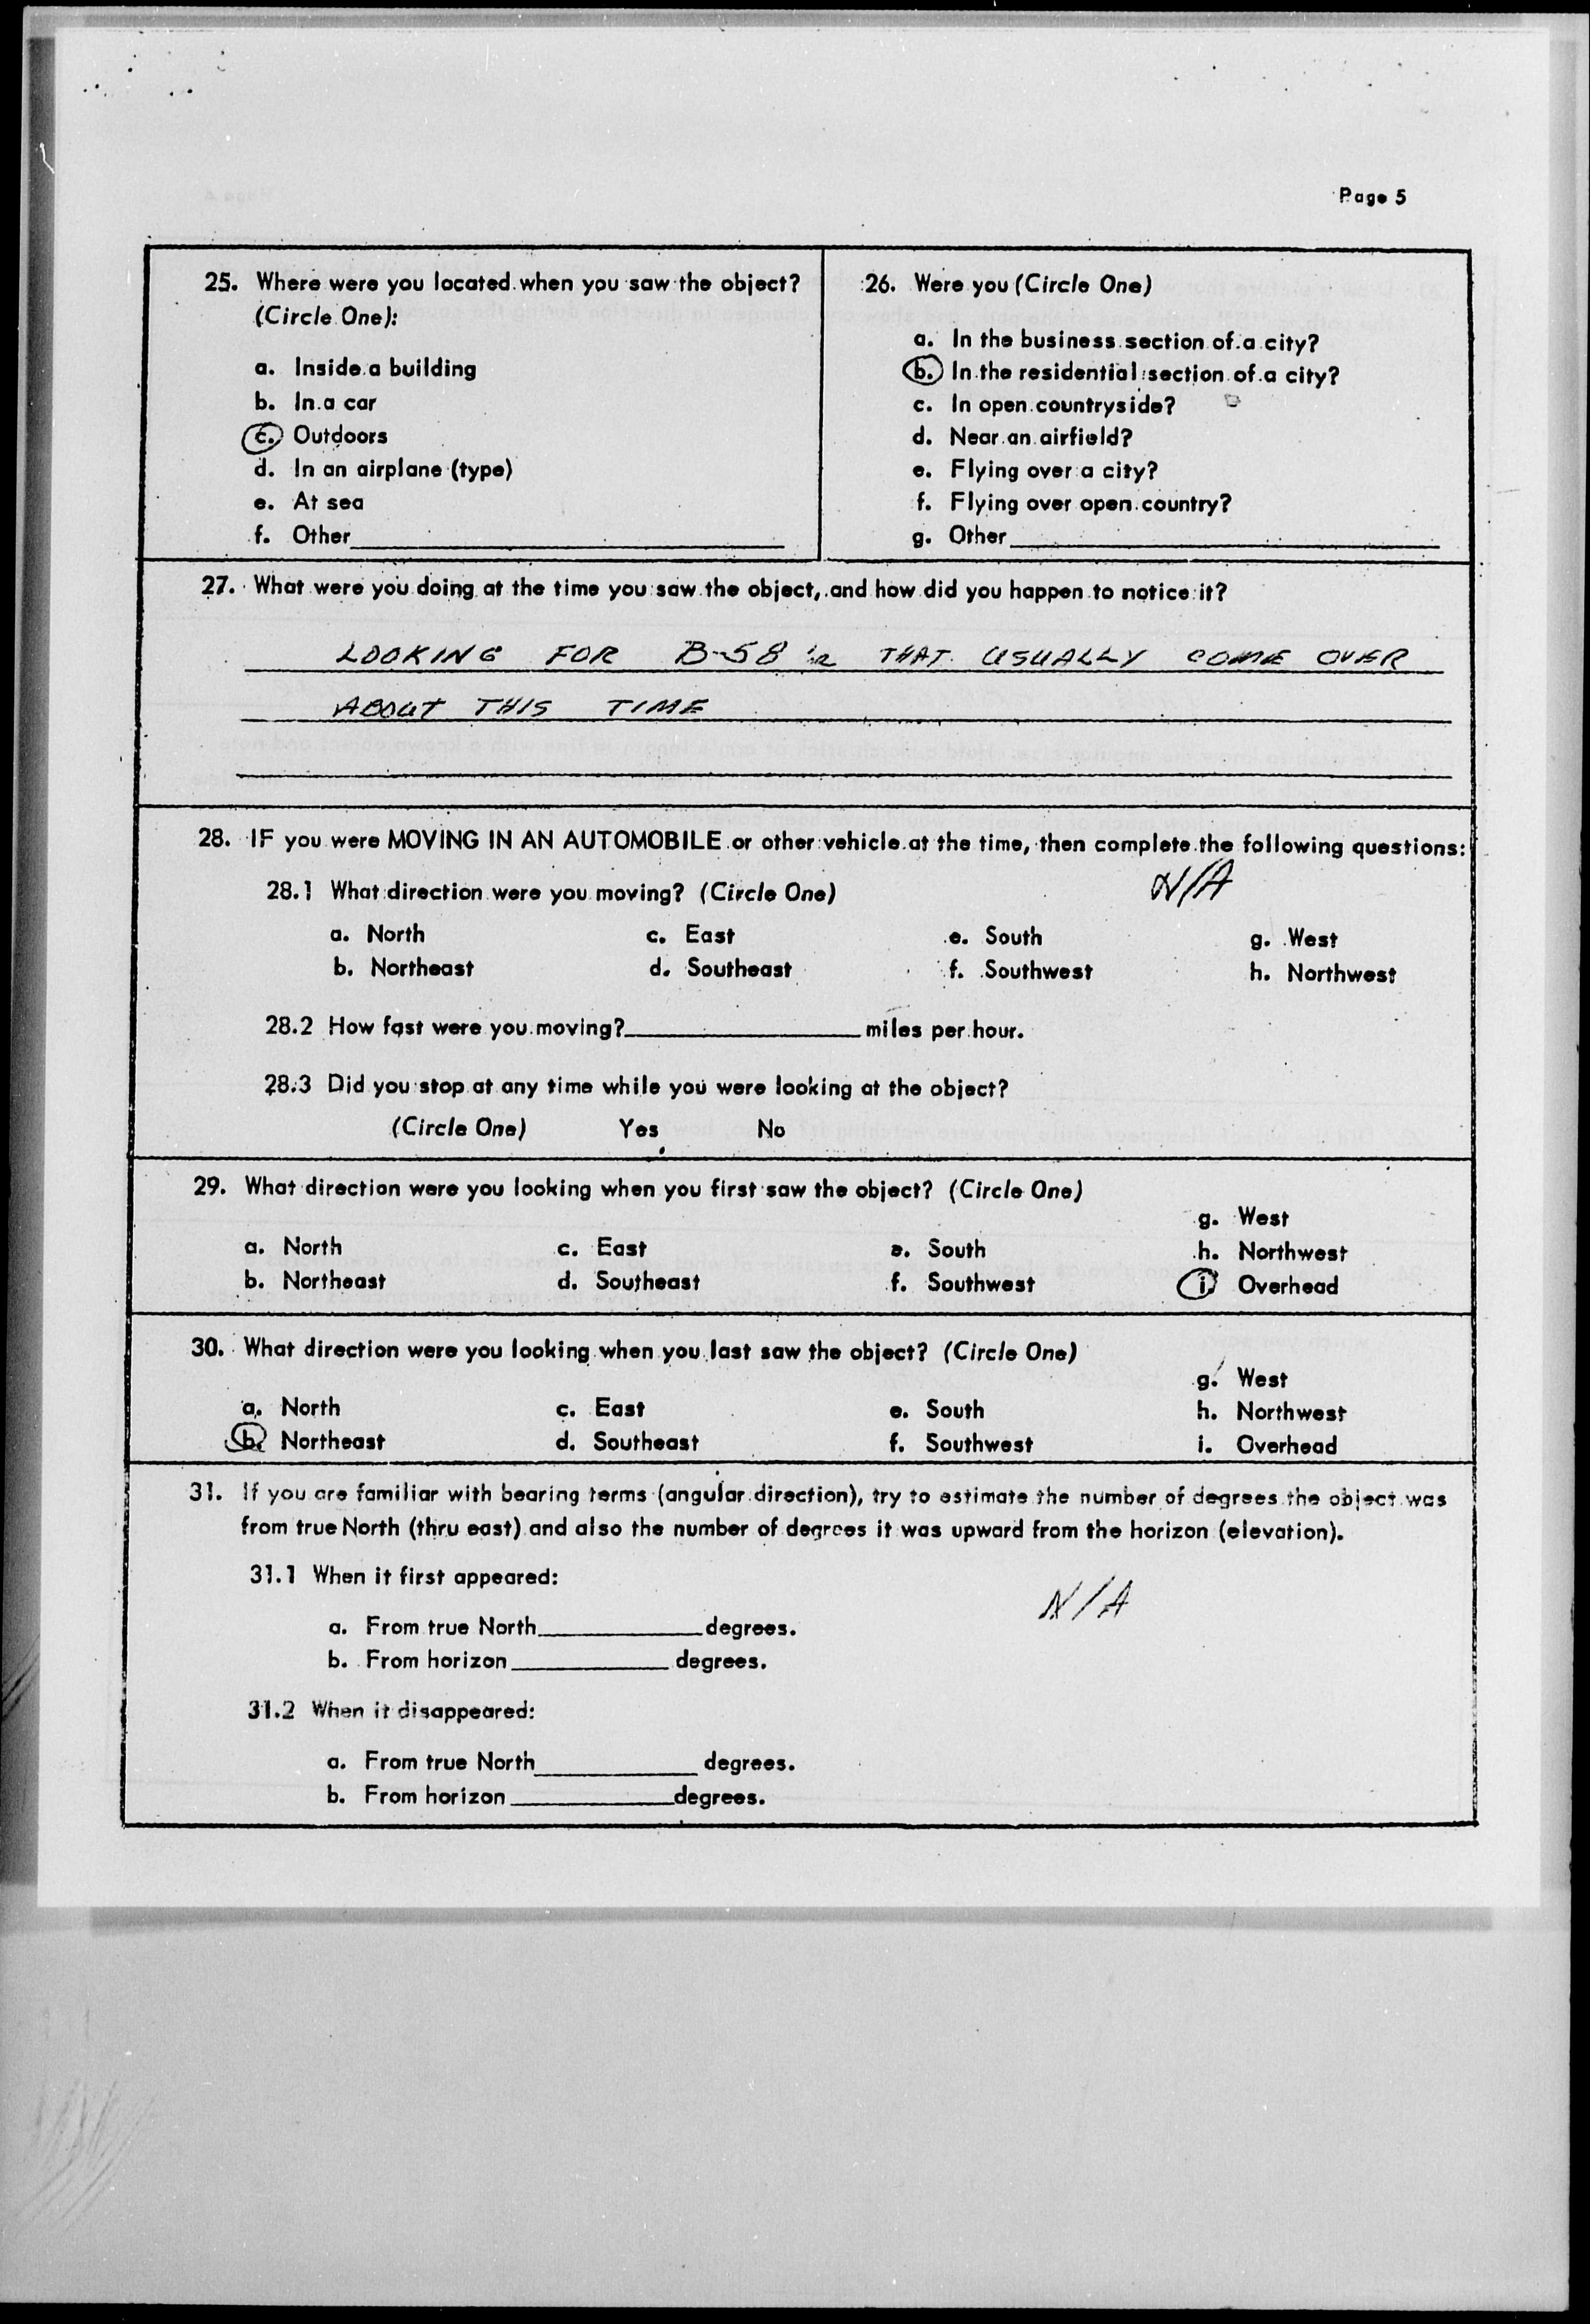 Page 5
25. Where were you located when you saw the object?
(Circle One):
a. Inside a building
b. In a car
c. Outdoors
d. In an airplane (type)
e. At sea
f. Other
26. Were you (Circle One)
a. In the business section of a city?
b. In the residential section of a city?
c. In open countryside?
d. Near an airfield?
e. Flying over a city?
f. Flying over open country?
g. Other
27. What were you doing at the time you saw the object, and how did you happen to notice it?
LOOKING FOR B-58's THAT USUALLY COME OVER
ABOUT THIS TIME
28. IF you were MOVING IN AN AUTOMOBILE or other vehicle at the time, then complete the following questions:
N/A
28.1 What direction were you moving? (Circle One)
a. North c. East e. South g. West
b. Northeast d. Southeast f. Southwest h. Northwest
28.2 How fast were you moving? miles per hour.
28.3 Did you stop at any time while you were looking at the object?
(Circle One) Yes No
29. What direction were you looking when you first saw the object? (Circle One)
g. West
a. North c. East e. South h. Northwest
b. Northeast d. Southeast f. Southwest i. Overhead
30. What direction were you looking when you last saw the object? (Circle One)
g. West
a. North c. East e. South h. Northwest
b. Northeast d. Southeast f. Southwest i. Overhead
31. If you are familiar with bearing terms (angular direction), try to estimate the number of degrees the object was
from true North (thru east) and also the number of degrees it was upward from the horizon (elevation).
31.1 When it first appeared:
N/A
a. From true North degrees.
b. From horizon degrees.
31.2 When it disappeared:
a. From true North degrees.
b. From horizon degrees.